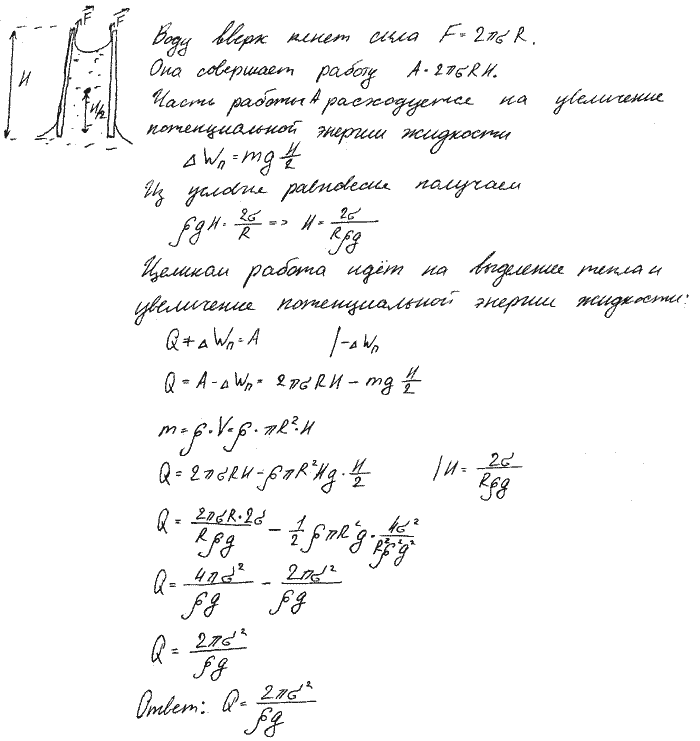 F F
H
H/2
Воду вверх тянет сила F = 2πσR.
Она совершает работу A = 2πσRH.
Часть работы A расходуется на увеличение
потенциальной энергии жидкости
ΔWп = mg H/2
Из условие равновесие получаем
ρgH = 2σ/R => H = 2σ/Rρg
Целиком работа идёт на выделение тепла и
увеличение потенциальной энергии жидкости:
Q + ΔWп = A |-ΔWп
Q = A - ΔWп = 2πσRH - mg H/2
m = ρ·V = ρ·πR²·H
Q = 2πσRH - ρπR²Hg · H/2 | H = 2σ/Rρg
Q = 2πσR·2σ/Rρg - 1/2 ρπR²g · 4σ²/R²ρ²g²
Q = 4πσ²/ρg - 2πσ²/ρg
Q = 2πσ²/ρg
Ответ: Q = 2πσ²/ρg